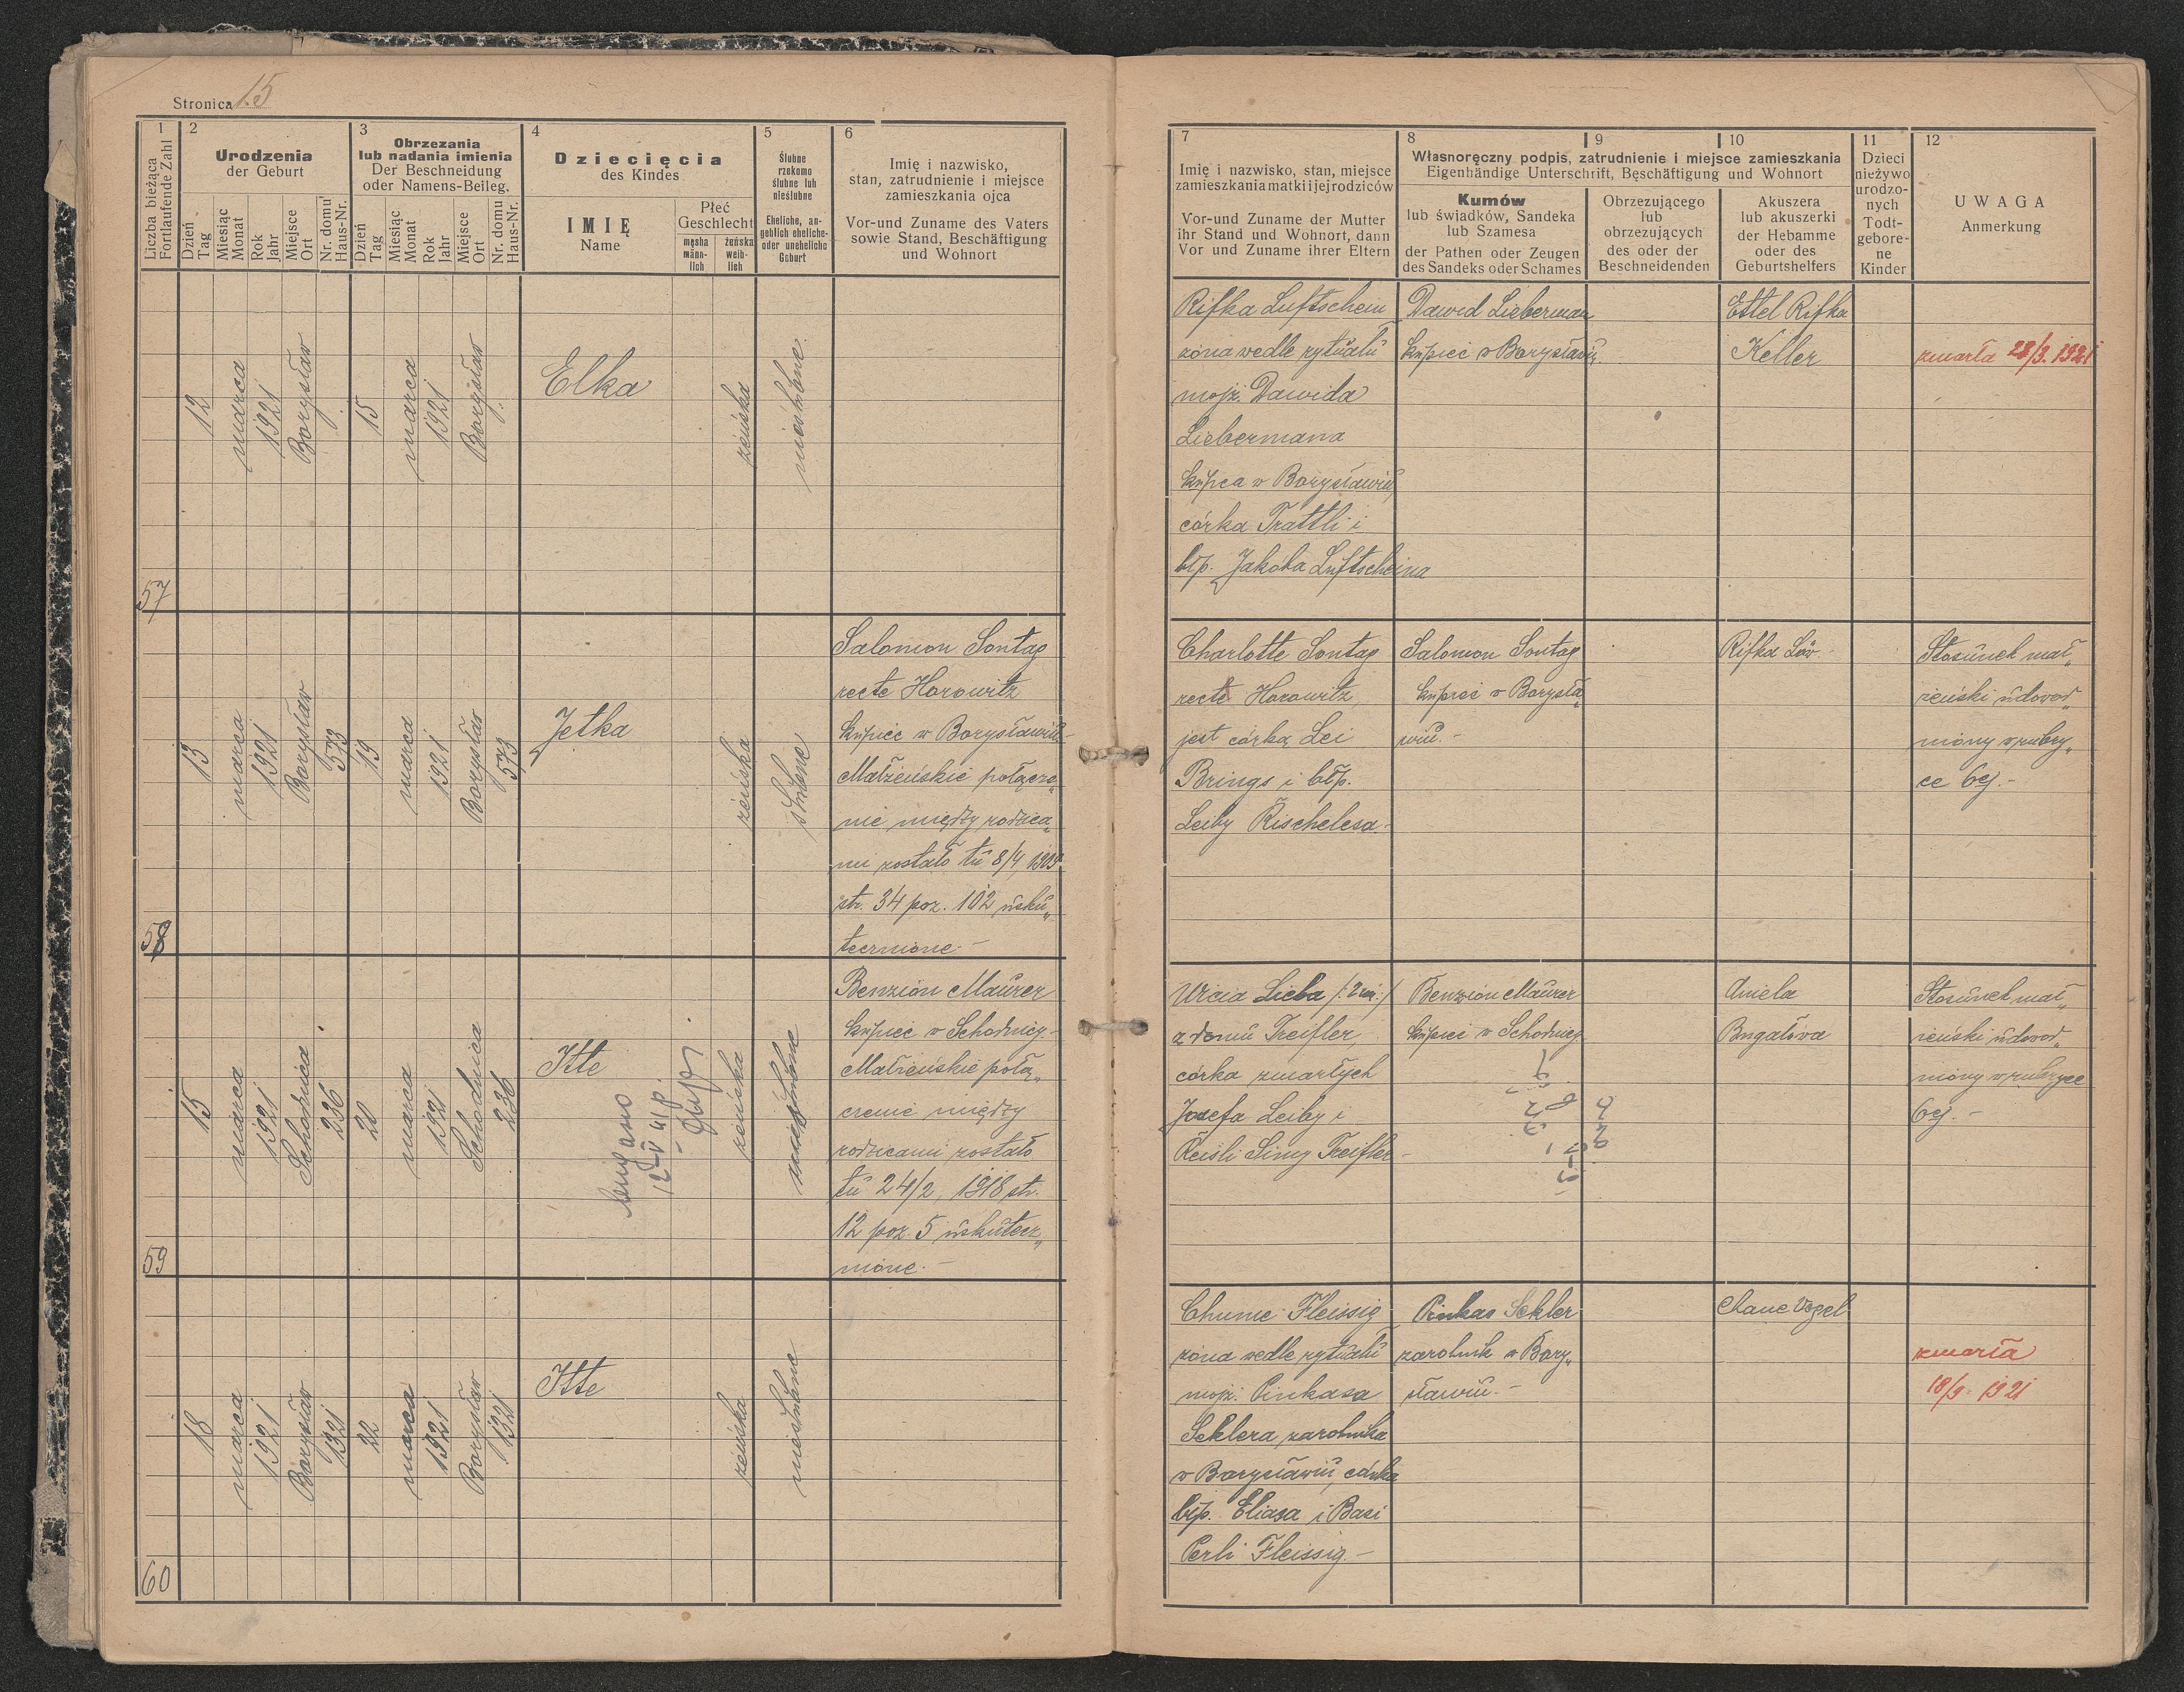 Stronica 15
1
Liczba bieżąca
Fortlaufende Zahl
2
Urodzenia
der Geburt
Dzień
Tag
Miesiąc
Monat
Rok
Jahr
Miejsce
Ort
Nr. domu
Haus-Nr.
3
Obrzezania
lub nadania imienia
Der Beschneidung
oder Namens-Beileg.
Dzień
Tag
Miesiąc
Monat
Rok
Jahr
Miejsce
Ort
Nr. domu
Haus-Nr.
4
Dziecięcia
des Kindes
IMIĘ
Name
Płeć
Geschlecht
męska
männ-
lich
żeńska
weib-
lich
5
Ślubne
rzekomo
ślubne lub
nieślubne
Eheliche, an-
geblich eheliche-
oder uneheliche
Geburt
6
Imię i nazwisko,
stan, zatrudnienie i miejsce
zamieszkania ojca
Vor-und Zuname des Vaters
sowie Stand, Beschäftigung
und Wohnort
7
Imię i nazwisko, stan, miejsce
zamieszkania matki i jej rodziców
Vor-und Zuname der Mutter
ihr Stand und Wohnort, dann
Vor und Zuname ihrer Eltern
8
9
10
Własnoręczny podpis, zatrudnienie i miejsce zamieszkania
Eigenhändige Unterschrift, Beschäftigung und Wohnort
Kumów
lub świadków, Sandeka
lub Szamesa
der Pathen oder Zeugen
des Sandeks oder Schames
Obrzezującego
lub
obrzezujących
des oder der
Beschneidenden
Akuszera
lub akuszerki
der Hebamme
oder des
Geburtshelfers
11
Dzieci
nieżywo
urodzo-
nych
Todt-
gebore-
ne
Kinder
12
UWAGA
Anmerkung
57
12
marca
1921
Borysław
15
marca
1921
Borysław
Elka
żeńska
nieślubne
Rifka Luftschein
żona wedle rytuału
mojż. Dawida
Liebermana
kupca w Borysławiu,
córka Trattli i
błp. Jakóba Luftscheina
Dawid Lieberman
kupiec w Borysławiu
Ettel Rifka
Keller
zmarła 28/3. 1921
58
13
marca
1921
Borysław
573
19
marca
1921
Borysław
573
Jetka
żeńska
ślubne
Salomon Sontag
recte Horowitz
kupiec w Borysławiu
Małżeńskie połącze„
nie między rodzica„
mi zostało tu 8/4
str. 34 poz. 102 usku„
tecznione.-
Charlotte Sontag
recte Horowitz,
jest córką Lei
Brings i błp.
Leiby Rischelesa.
Salomon Sontag
kupiec w Borysła„
wiu.-
Rifka Löw
Stosunek mał„
żeński udowod„
niony w rubry„
ce 6ej.-
59
15
marca
1921
Schodnica
236
20
marca
1921
Schodnica
236
Itte
12-V 41 p.
żeńska
Benzion Maurer
kupiec w Schodnicy.-
Małżeńskie połą„
czenie między
rodzicami zostało
tu 24/2, 1918 str.
12 poz. 5 uskutecz„
nione.-
Lieba /:2 im:/
z domu Treifler,
córka zmarłych
Josefa Leiby i
Reisli Simy Treifler-
Benzion Maurer
kupiec w Schodnicy
Aniela
Bugatowa
Stosunek mał„
żeński udowod„
niony w rubryce
6ej.-
60
18
marca
1921
Borysław
1321
22
marca
1921
Borysław
1321
Itte
żeńska
nieślubne
Chume Fleissig
żona wedle rytuału
mojż. Pinkasa
Seklera zarobnika
w Borysławiu, córka
błp. Eliasa i Basi
Perli Fleissig.-
Pinkas Sekler
zarobnik w Bory„
sławiu.-
Chane Vogel
zmarła
18/9 1921